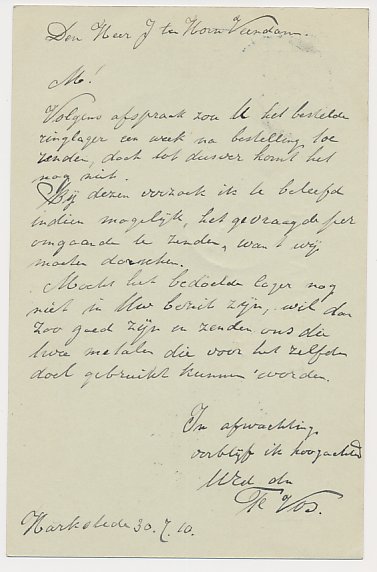 Den Heer J ten Horn Veendam.
M!
Volgens afspraak zou U het bestelde
ringlager een week na bestelling toe
zenden, doch tot dusver komt het
nog niet.
Bij dezen verzoek ik U beleefd
indien mogelijk, het gevraagde per
omgaande te zenden, want wij
moeten dorschen.
Mocht het bedoelde lager nog
niet in Uw bezit zijn, wil dan
zoo goed zijn en zenden ons die
twee metalen die voor het zelfde
doel gebruikt kunnen worden.
In afwachting
verblijf ik hoogachtend
Uw dn
Vos.
Harkstede 30.7.10.